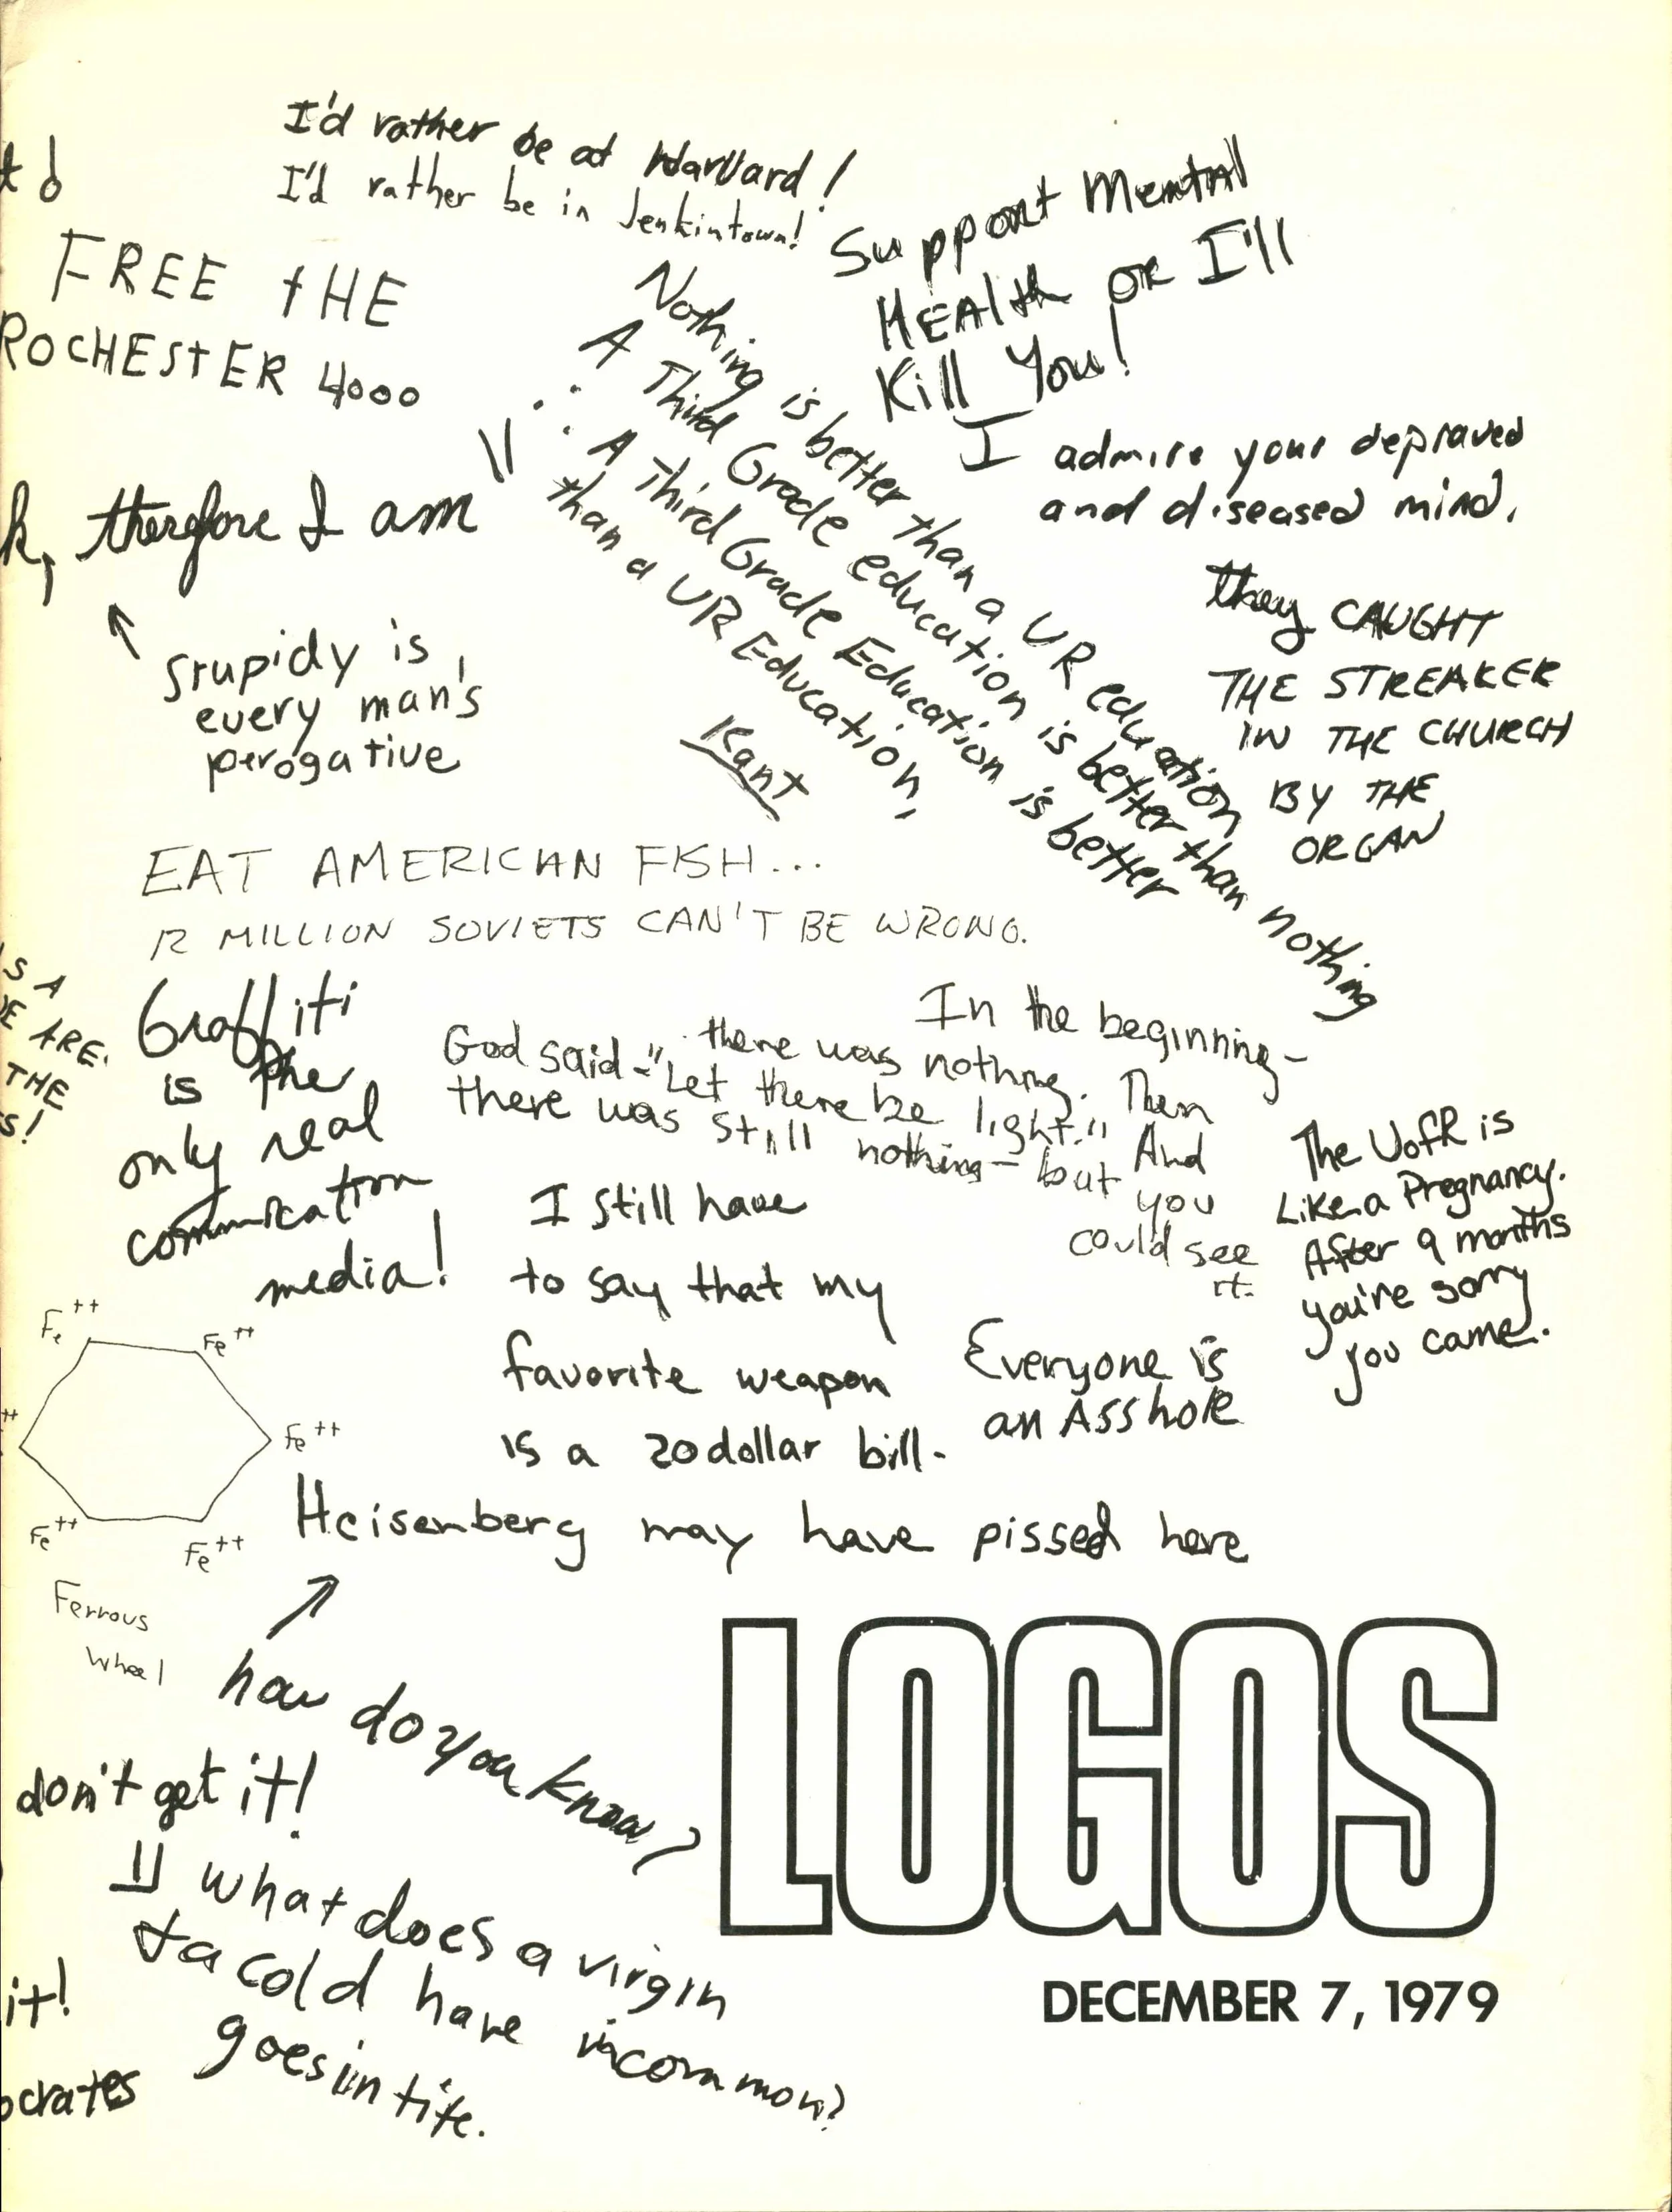 I'd rather be at Harvard!
I'd rather be in Jenkintown!
FREE tHE
ROCHEStER 4000
Support Mental
HEAlth OR I'll
Kill You!
I admire your depraved
and diseased mind.
Nothing is better than a UR education
A Third Grade education is better than nothing
∴ A Third Grade Education is better
than a UR Education,
Kant
k, therefore I am
Stupidy is
every man's
perogative
they CAUGHT
THE STREAKER
IN THE CHURCH
BY THE
ORGAN
EAT AMERICAN FISH...
12 MILLION SOVIETS CAN'T BE WRONG.
S A
E ARE.
THE
S!
Graffiti
is the
only real
communication
media!
In the beginning-
there was nothing. Then
God said-"Let there be light." And
there was still nothing- but you
could see
it.
The UofR is
Like a Pregnancy.
After 9 months
you're sorry
you came.
I still have
to say that my
favorite weapon
is a 20 dollar bill.
Everyone is
an Asshole
Fe++
Fe++
++
Fe++
Fe++
Fe++
Ferrous
Wheel
Heisenberg may have pissed here
how do you know?
don't get it!
what does a virgin
+ a cold have in common?
goes in tite.
it!
ocrates
LOGOS
DECEMBER 7, 1979